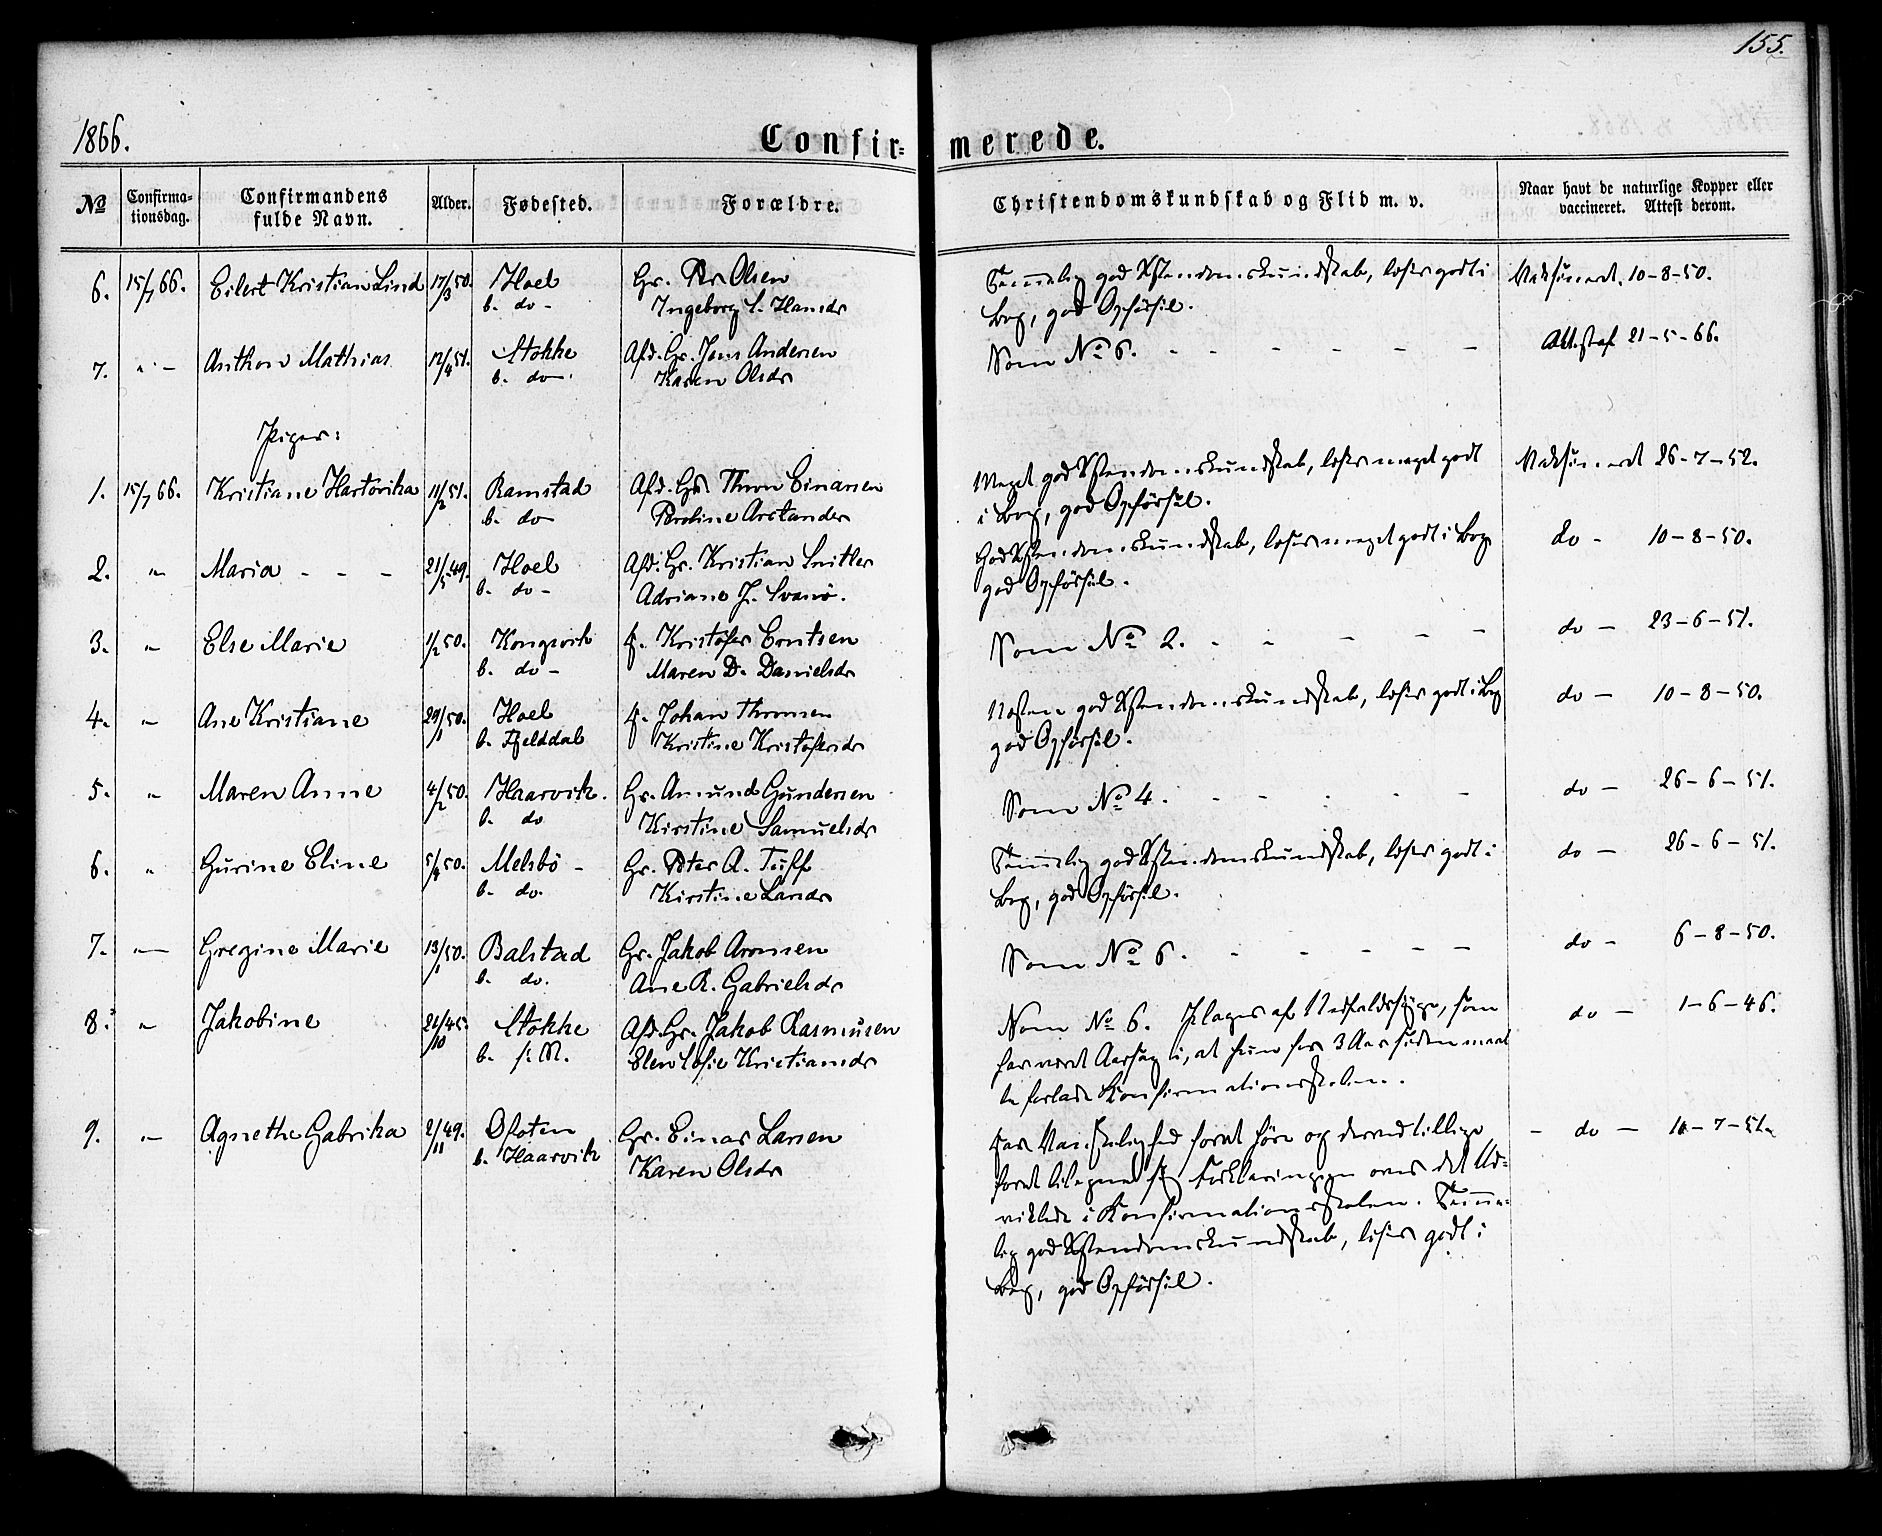 155.
1866.
Confir-
merede.
No
Confirma-
tionsdag.
Confirmandens
fulde Navn.
Alder.
Fødested.
Forældre.
Christendomskundskab og Flid m. v.
Naar havt de naturlige Kopper eller
vaccineret. Attest derom.
6. 15/7 66. Eilert Kristian Lind 17/3 50. Hoel Gr. Olsen Temmelig god Xstendomskundskab, læser godt i Vaksineret 10-8-50.
b. do - Ingeborg L. Hansdr Bog, god Opførsel.
7. " - Anthon Mathias 12/4 51. Stokke Afd. Gr. Jens Andersen Som No 6. - - - - - - Att. 21-5-66.
b. do - Karen Olsdr
Piger:
1. 15/7 66. Kristiane Hartvika 11/2 51. Ramstad Afd. Gr. Thron Einarsen Meget god Xstendomskundskab, læser meget godt Vaksineret 26-7-52.
b. do - i Bog, god Opførsel.
2. " Maria - - - 21/5 49. Hoel Afd. Gr. Kristian Snitler God Xstendomskundskab, læser meget godt i Bog do - 10-8-50.
b. do - Adriane J. god Opførsel.
3. " Else Marie 1/2 50. Kongsvik f. Kristofer Erntsen Som No 2. - - - - - do - 23-6-51.
b. do - Maren D. Danielsdr
4. " Ane Kristiane 29/1 50. Hoel f. Johan Thomsen Næsten god Xstendomskundskab, læser godt i Bog do - 10-8-50.
b. Fjelddal Kristine Kristofersdr god Opførsel.
5. " Maren Anne 4/2 50. Haarvik. Gr. Amund Gundersen Som No 4. - - - - - do - 26-6-51.
b. do Kirstine Samuelsdr
6. " Gurine Eline 5/4 50. Melsbö - Gr. Peter A. Tuff Temmelig god Xstendomskundskab, læser godt i do - 26-6-51.
b. do. Kirstine Larsdr Bog, god Opførsel.
7. " - Gregine Marie 13/1 50. Balstad Gr. Jakob Aronsen Som No 6. - - - - - do - 6-8-50.
b. do. Ane R. Gabrielsdr
8. " Jakobine 21/10 45. Stokke Afd. Gr. Jakob Rasmusen Som No 6. Plages af Nedfaldssyge, som do - 1-6-46.
b. Elen Sofie Kristiansdr har været Aarsag i, at hun for 3 Aar siden maat
te forlade Konfirmationsskolen.
9. " Agnethe Gabrika 2/11 49. Ofoten Gr. Einar Larsen har Vanskelighed for at høre og derved tillige - do - 10-7-51.
b. Haarvik Karen Olsdr for at tilegne sig Forklaringen over det Ud-
viklede i Konfirmationsskolen. Temme-
lig god Xstendomskundskab, læser godt i
Bog, god Opførsel.